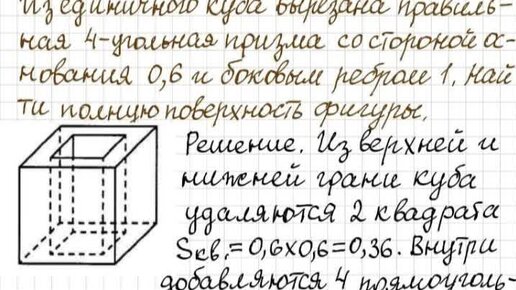 Из единичного куба вырезана правиль-
ная 4-угольная призма со стороной ос-
нования 0,6 и боковым ребром 1. Най
ти полную поверхность фигуры.
Решение. Из верхней и
нижней грани куба
удаляются 2 квадрата
Sкв.=0,6x0,6=0,36. Внутри
добавляются 4 прямоуголь-